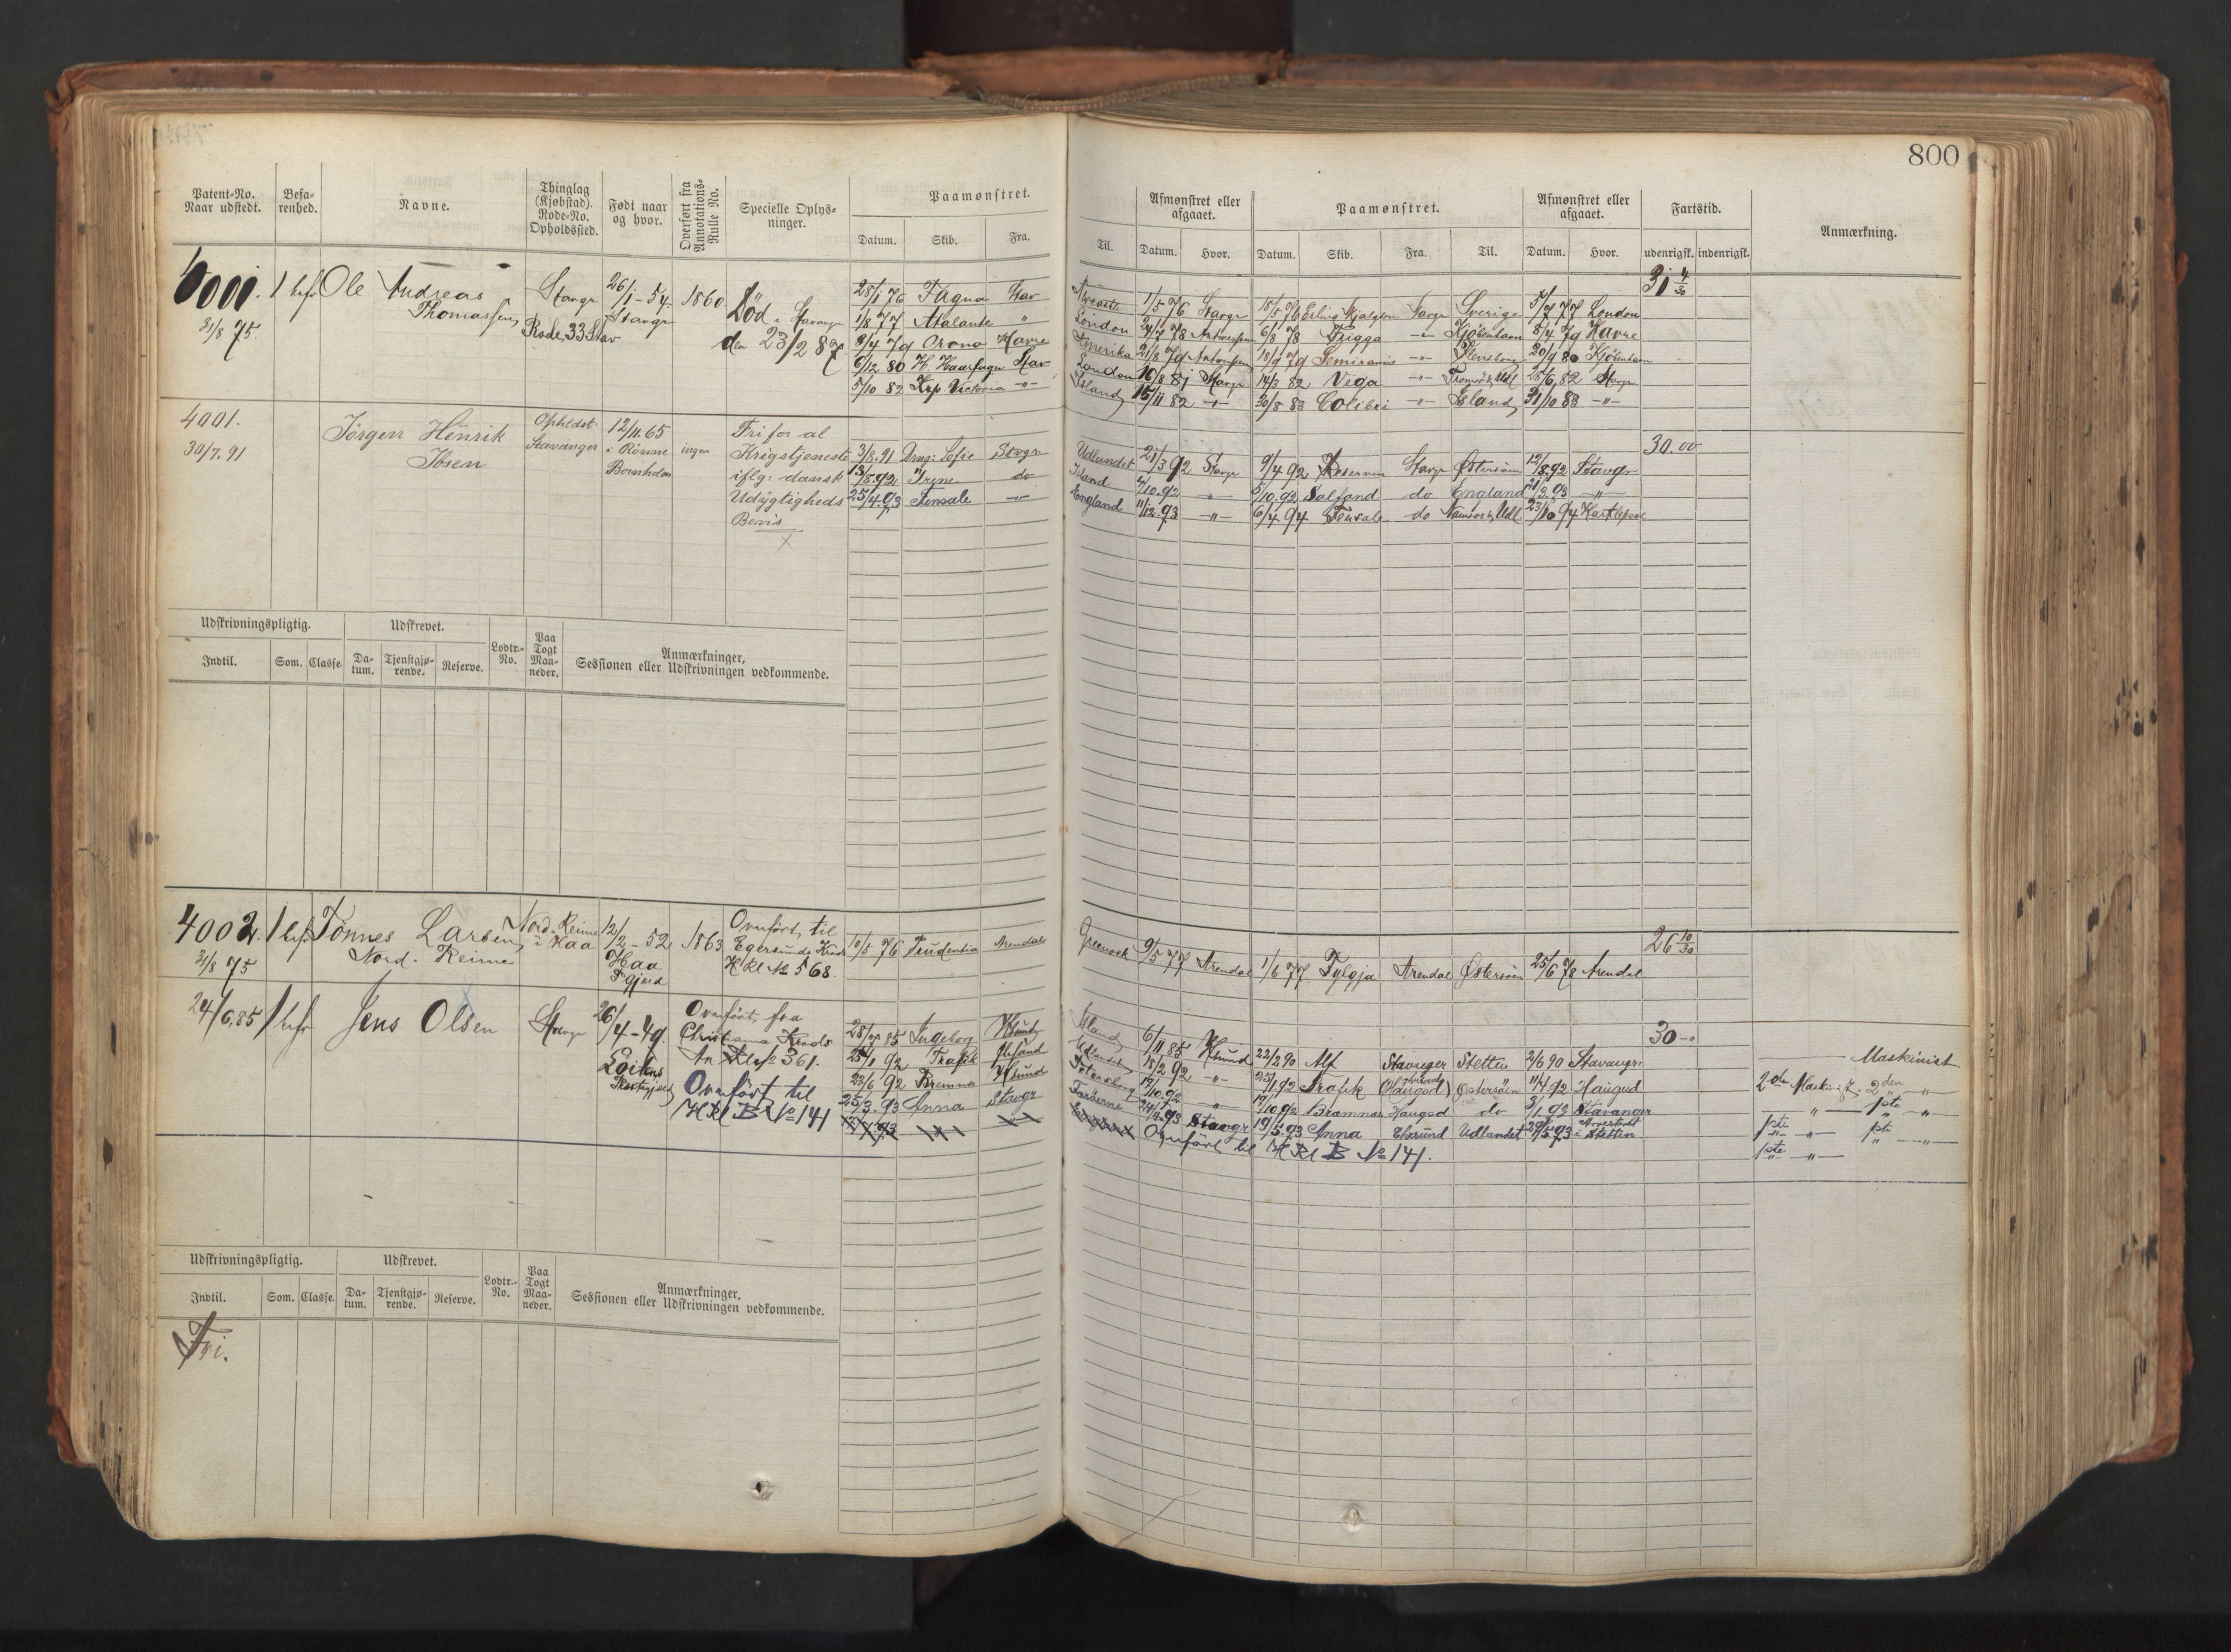 800
Patent-No. Naar udstedt.
Befa-renhed.
Navne.
Thinglag (Kjøbstad). Rode-No. Opholdssted.
Født naar og hvor.
Overført fra Annotations-Rulle No.
Specielle Oplys-ninger.
Paamønstret.
Datum. Skib. Fra.
Til.
Afmønstret eller afgaaet.
Datum. Hvor.
Paamønstret.
Datum. Skib. Fra. Til.
Afmønstret eller afgaaet.
Datum. Hvor.
Fartstid.
udenrigsk. indenrigsk.
Anmærkning.
4001. 1 bef Ole Andreas Thomassen
31/8 75.
Stavgr
Rode 33 Stav
26/1-54
Stavgr
1860
Død i Stavanger
den 23/2 87
28/1 76 Fagna Stav
1/8 77 Atalante "
8/4 79 Orono Havre
6/12 80 H. Haarfagr Stav
5/10 82 Krp Victoria -"-
1/5 76 Stavgr 18/5 76 Erling Skjalgson Stavgr Sverige 5/7 77 London
London 24/7 78 Antwerpen 6/8 78 Frigga -"- Kjøbenhavn 8/4 79 Havre
Amerika 21/8 79 Antwerpen 18/9 79 Semiramis -"- Flensborg 20/9 80 Kjøbenhavn
London 10/8 81 Stavgr 14/3 82 Vega -"- Tromsø & Udl 28/6 82 Stavgr
Island 15/11 82 -"- 30/8 83 Colibri -"- Island 31/10 83 -"-
31 4/30
4001.
30/7.91
Jörgen Henrik
Ibsen
Opholdst.
Stavanger
12/11.65
i Rönne
Bornholm
ingen
Fri for al
Krigstjeneste
iflg: dansk
Udygtigheds
Bevis
3/8.91 Anna Sofie Stavgr
13/8.92 Tryne do
25/4.93 Tensale -"-
Udlandet 21/3 92 Stavgr 9/4.92 Reserven Stavgr Østersöen 12/8.92 Stavgr
Island 4/10.92 -"- 5/10.92 Salfand do England 21/3.93 -"-
England 11/12.93 -"- 6/4 94 Tensale do Namsos & Udl 23/10 94 Hartlepool
30.00
Udskrivningspligtig. Udskrevet. Lodtr.-No. Paa Togt Maa-neder. Anmærkninger, Sessionen eller Udskrivningen vedkommende.
Indtil. Som. Classe. Da-tum. Tjenstgjø-rende. Reserve.
4002. 1 bef Tønnes Larsen
Nord-Reime
31/8 75
Nord-Reime
i Haa
12/2-52
Haa
Pgjæld
1863
Overført til
Egersunds Kreds
H Rl No 568.
10/5 76 Prudentia Arendal
Greenock 9/5 77 Arendal 1/6 77 Fylgja Arendal Østersøen 25/6 78 Arendal
26 10/30
24/6.85 1 bef Jens Olsen Stavgr
26/4-49.
Løiten
Præstegjeld
Overført fra
Christiania Kreds
An Rl No 361.
Overført til
H Rl B No 141
28/5 85 Ingeborg Hsund
25/1 92 Trafik Hsund
22/6 92 Bremnes Hsund
25/3.93 Anna Stavgr
Island 6/11 85 Hsund 22/2 90 Alf Stavanger Stettin 2/6 90 Stavangr
Udlandet 18/2 92 -"- 25/1 92 Trafik Haugsd Østersöen 11/4 92 Haugsd
Petersborg 17/10.92 -"- 17/10.92 Bramnæs Haugsd do 3/1.93 Stavanger
Færøerne 24/4.93 Stavgr 19/5.93 Anna Ehsund Udlandet 29/5.93 Arresteret i Stettin
Overført til H Rl B No 141.
30 -"
Maskinist
2den Maskinist 2den "
" 1ste "
1ste " 1ste "
1ste "
Udskrivningspligtig. Udskrevet. Lodtr.-No. Paa Togt Maa-neder. Anmærkninger, Sessionen eller Udskrivningen vedkommende.
Indtil. Som. Classe. Da-tum. Tjenstgjø-rende. Reserve.
Fri.